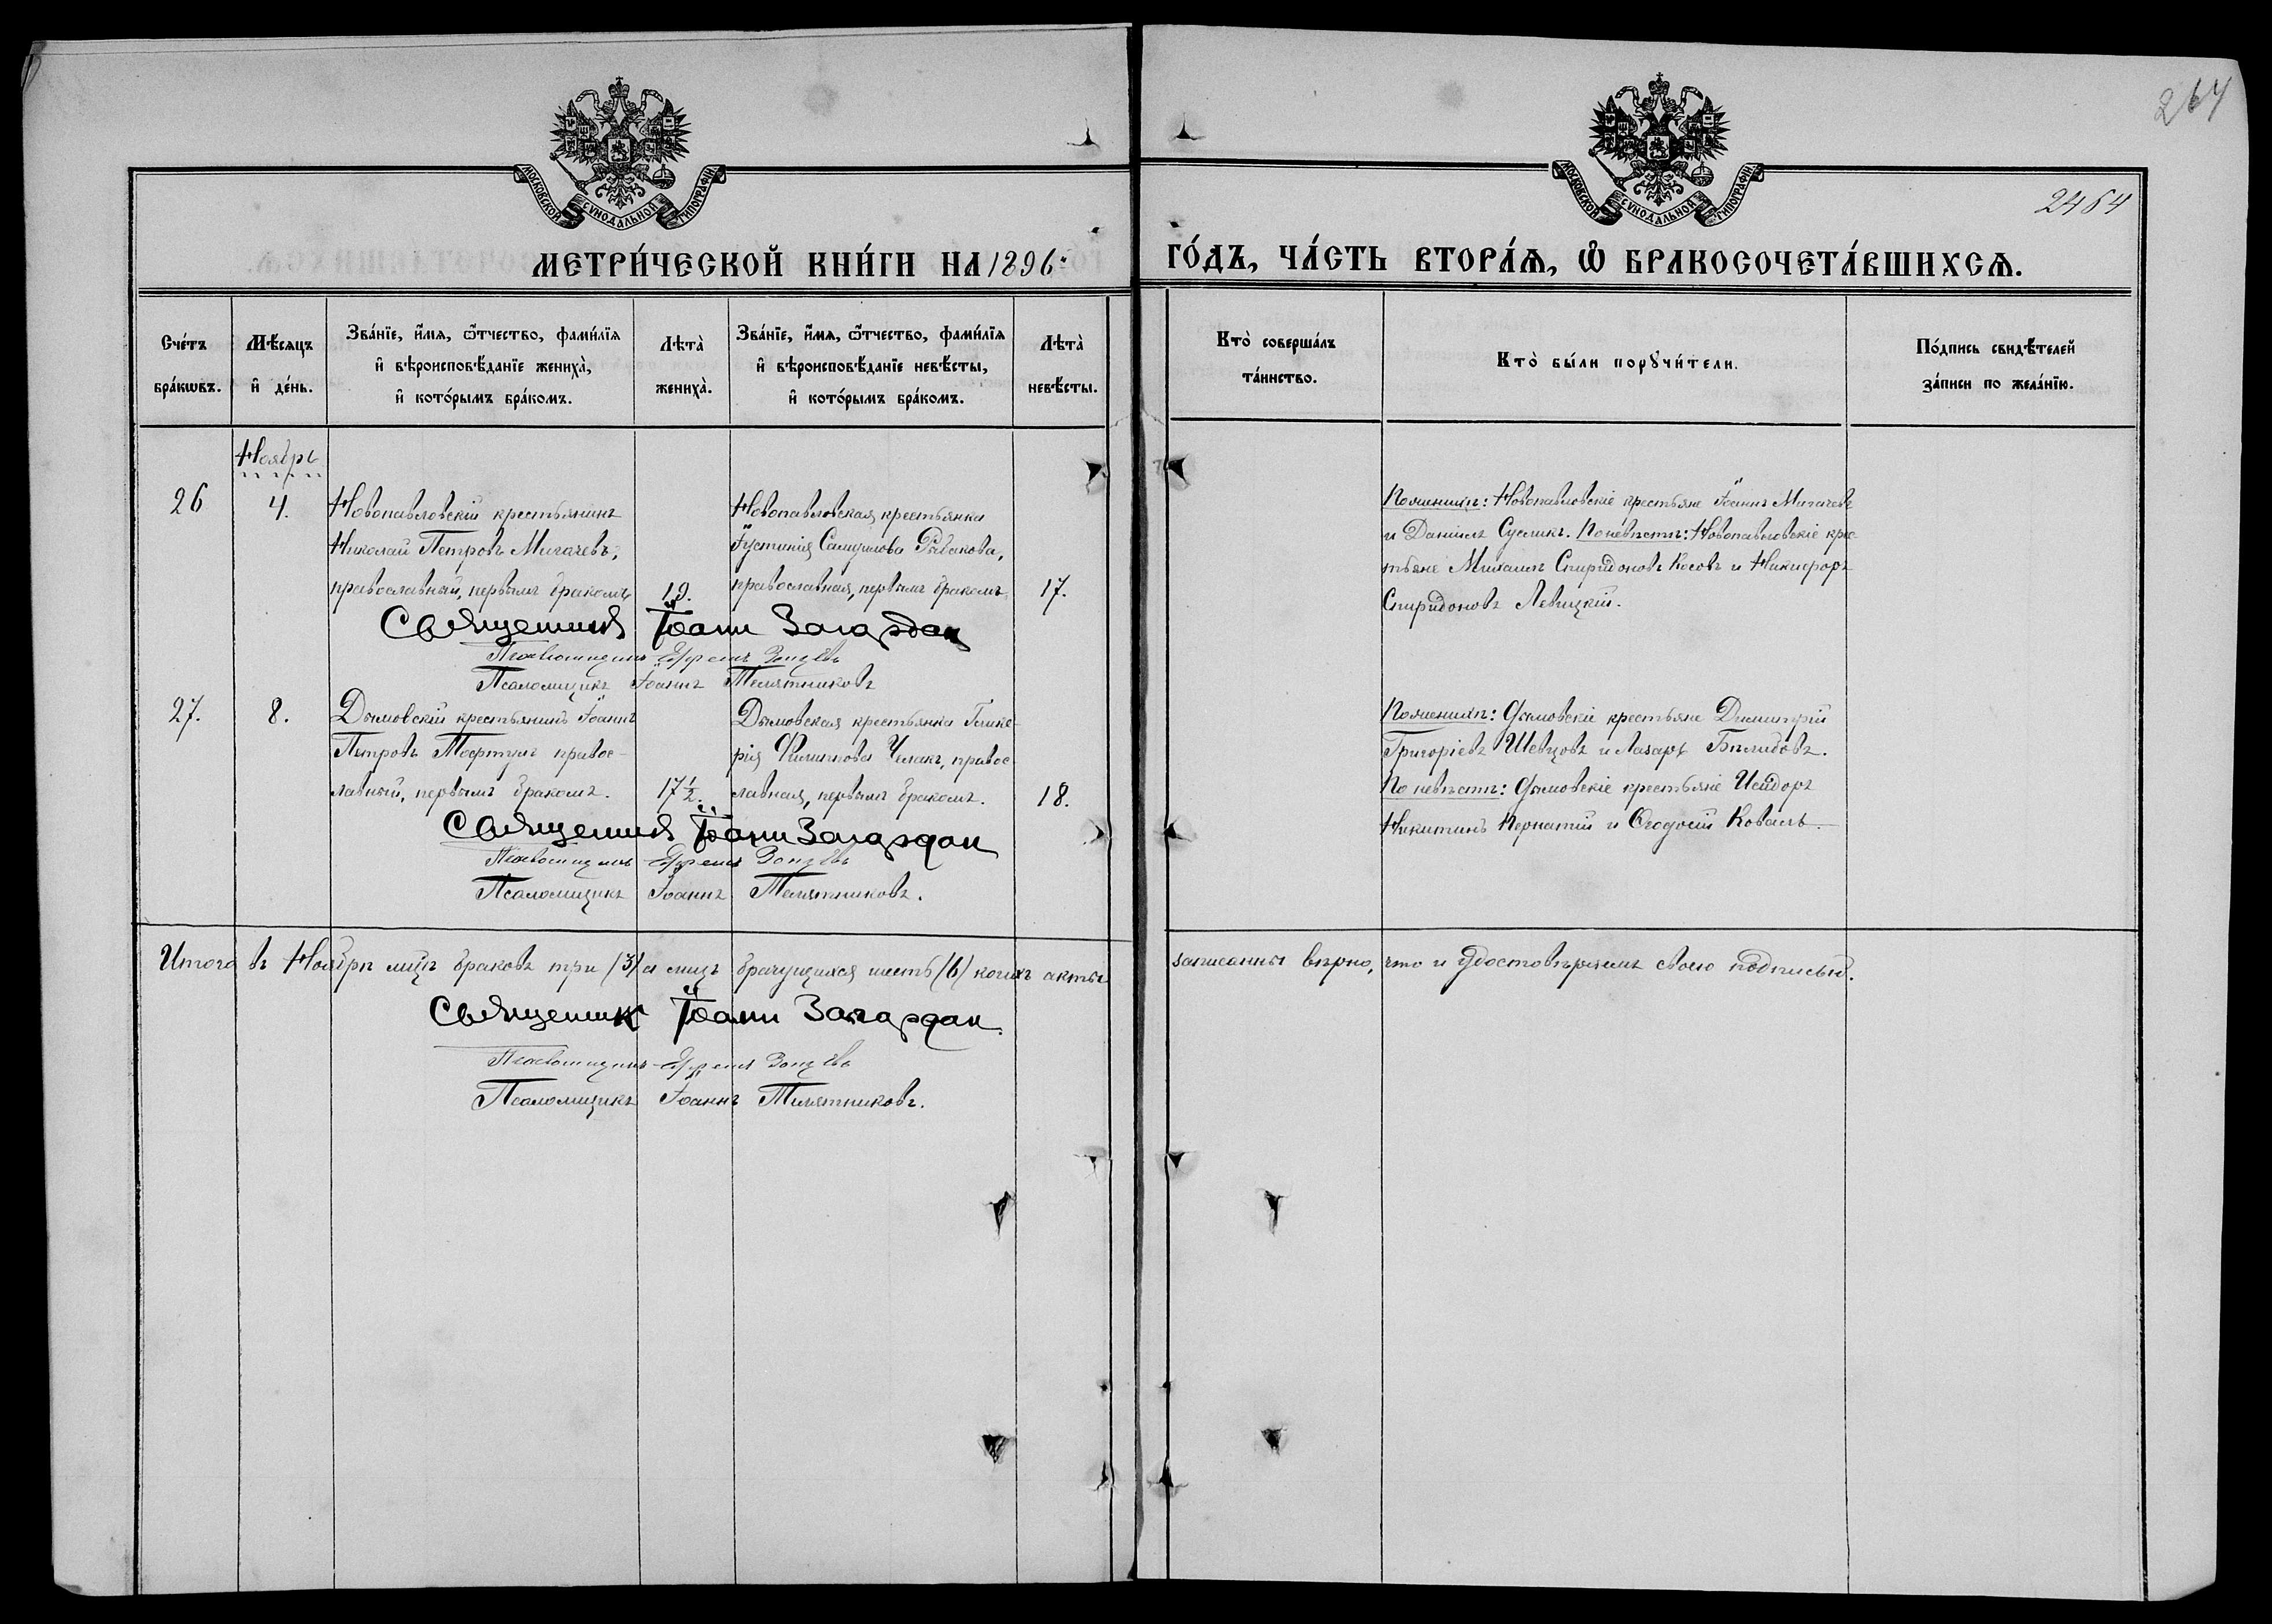 264
2464
МОСКОВСКОЙ СѴНОДАЛЬНОЙ ТИПОГРАФІИ
МОСКОВСКОЙ СѴНОДАЛЬНОЙ ТИПОГРАФІИ
МЕТРИ́ЧЕСКОЙ КНИ́ГИ НА 1896.
ГО́ДЪ, ЧА́СТЬ ВТОРА́Ѧ, Ѽ БРАКОСОЧЕТА́ВШИХСѦ.
Сче́тъ бра́кѡвъ.
Мѣ́сяцъ и҆ де́нь.
Зва́нїе, и҆́мѧ, ѻ҆́тчество, фами́лїѧ
и҆ вѣроисповѣ́данїе жениха̀,
и҆ кото́рымъ бра́комъ.
Лѣта̀ жениха̀.
Зва́нїе, и҆́мѧ, ѻ҆́тчество, фами́лїѧ
и҆ вѣроисповѣ́данїе невѣ́сты,
и҆ кото́рымъ бра́комъ.
Лѣта̀ невѣ́сты.
Кто̀ соверша́лъ та́инство.
Кто̀ бы́ли порꙋчи́тели.
По́дпись свидѣ́телей
за́писи по жела́нїю.
Ноябрь
26
4.
Новопавловскій крестьянинъ
Николай Петровъ Мигачевъ,
православный, первымъ бракомъ
19.
Новопавловская крестьянка
Іустинія Рыбакова,
православная, первымъ бракомъ
17.
По женихѣ: Новопавловскіе крестьяне Іоаннъ Мигачевъ
и Даніилъ Сусликъ. По невѣстѣ: Новопавловскіе крес-
тьяне Михаилъ Спиридоновъ Косовъ и Никифоръ
Спиридоновъ Левицкій.
Священник Іоанн Загародан
Псаломщикъ Ефремъ
Псаломщикъ Іоаннъ Телятниковъ
27.
8.
Дымовскій крестьянинъ Іоаннъ
Петровъ правос-
лавный, первымъ бракомъ.
17½.
Дымовская крестьянка Глике-
рія Филиппова Челакъ, правос-
лавная, первымъ бракомъ.
18.
По женихѣ: Дымовскіе крестьяне Димитрій
Григоріевъ Шевцовъ и Лазарь
По невѣстѣ: Дымовскіе крестьяне Исидоръ
Никитинъ Пернатій и Ѳеодосій Коваль.
Священник Іоанн Загародан
Псаломщикъ Ефремъ
Псаломщикъ Іоаннъ Телятниковъ.
Итого въ Ноябрѣ м̃цѣ браковъ три (3) а лицъ брачущихся шесть (6) коихъ акты записаны вѣрно, что и удостовѣряемъ своею подписью.
Священник Іоанн Загародан.
Псаломщикъ Ефремъ
Псаломщикъ Іоаннъ Телятниковъ.